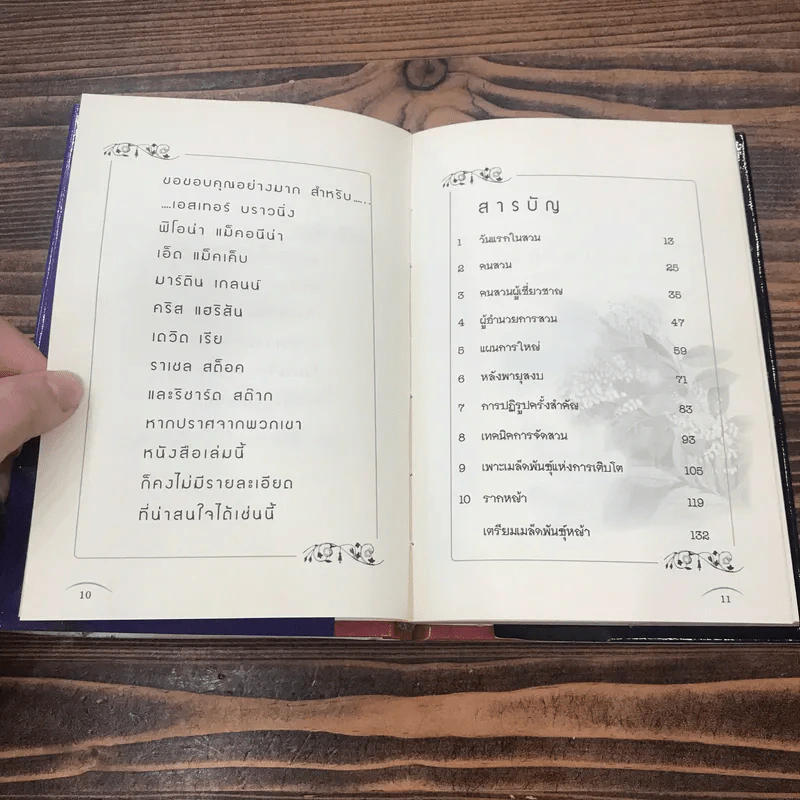 ขอขอบคุณอย่างมาก สำหรับ.....
....เอสเทอร์ บราวนิ่ง
ฟิโอน่า แม็คอนีน่า
เอ็ด แม็คเค็บ
มาร์ติน เกลนน์
คริส แฮริสัน
เดวิด เรีย
ราเชล สต็อค
และริชาร์ด สต๊าก
หากปราศจากพวกเขา
หนังสือเล่มนี้
ก็คงไม่มีรายละเอียด
ที่น่าสนใจได้เช่นนี้
10
สารบัญ
1 วันแรกในสวน 13
2 คนสวน 25
3 คนสวนผู้เชี่ยวชาญ 35
4 ผู้อำนวยการสวน 47
5 แผนการใหญ่ 59
6 หลังพายุสงบ 71
7 การปฏิรูปครั้งสำคัญ 83
8 เทคนิคการจัดสวน 93
9 เพาะเมล็ดพันธุ์แห่งการเติบโต 105
10 รากหญ้า 119
เตรียมเมล็ดพันธุ์หญ้า 132
11